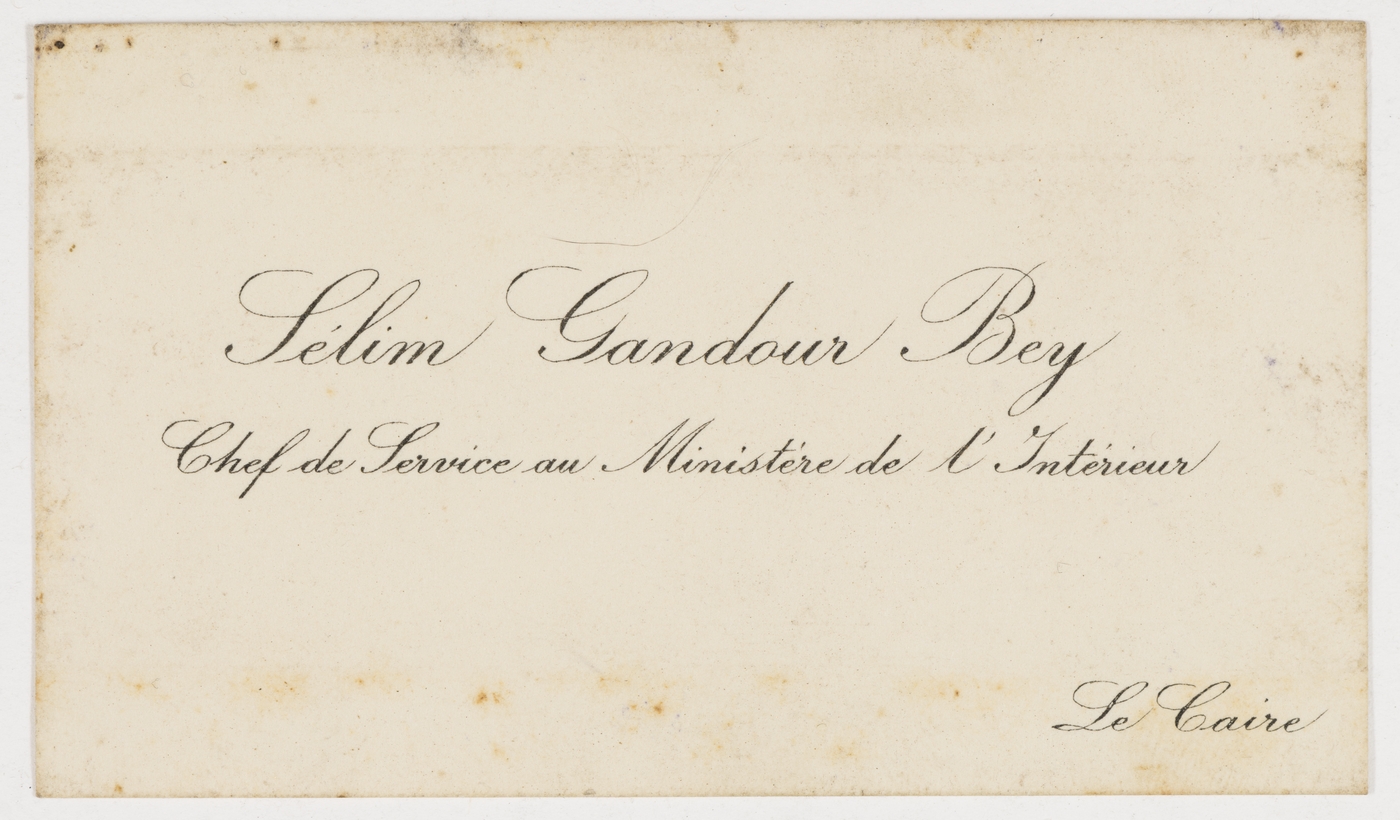 Sélim Gandour Bey
Chef de Service au Ministére de l'Intérieur
Le Caire